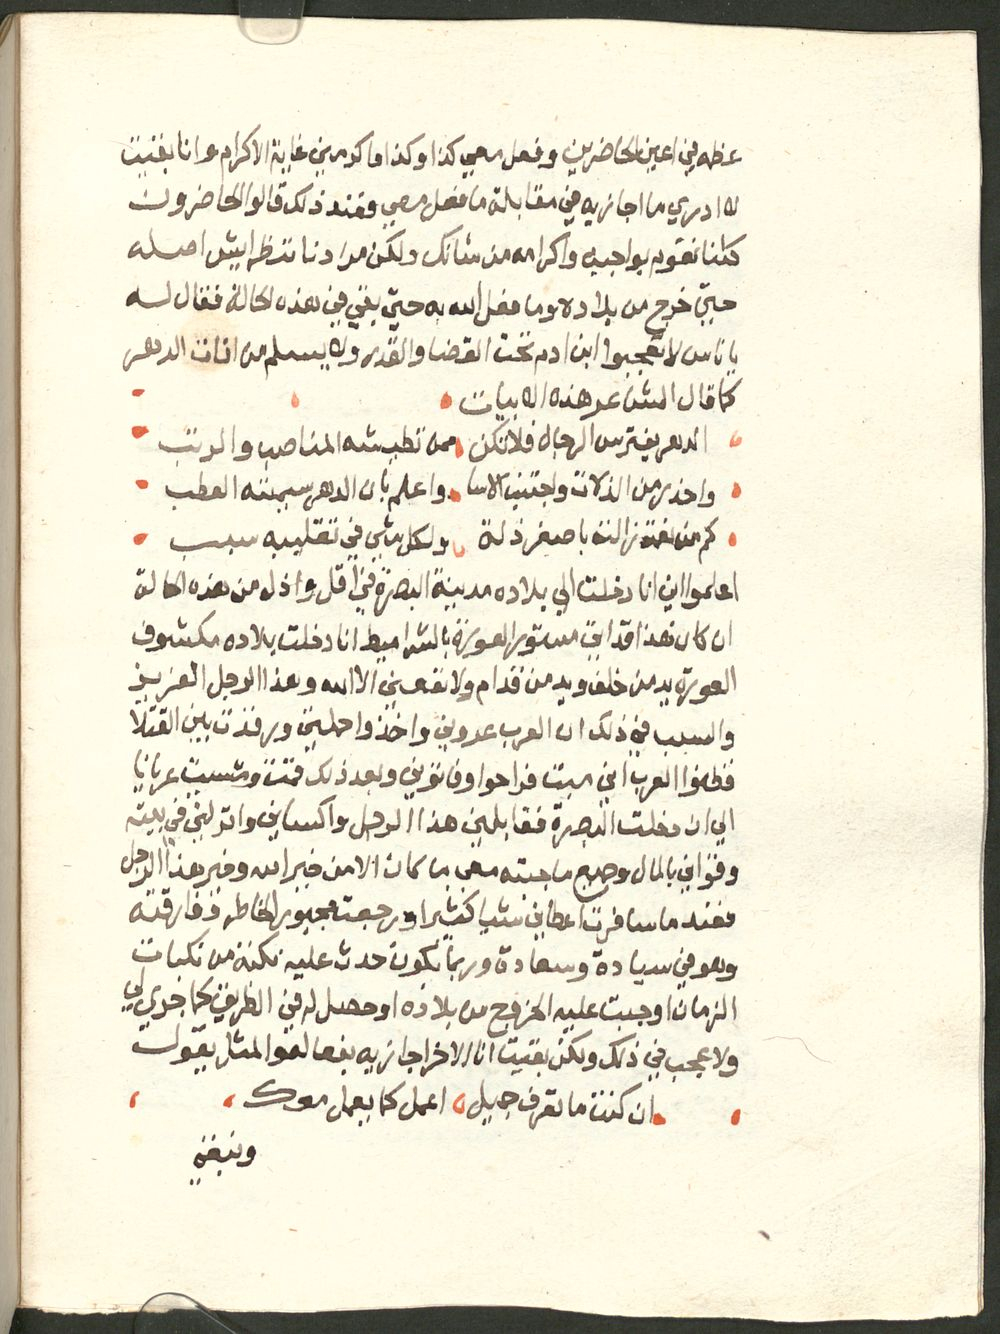 عظم في اعين الحاضرين وفعل معي كذا وكذا واكرمني غاية الاكرام وانا بقيت
لا ادري ما اجازيه في مقابلة ما فعل معي فعند ذلك قالوا الحاضرون
كلنا نقوم بواجبه واكرامه من شانك ولكن مرادنا ننظر ايش اصله
حتي خرج من بلاده وما فعل الله به حتي بقي في هذه الحالة فقال لهم
يا ناس لا تعجبوا ابن ادم تحت القضا والقدر ولا يسلم من افات الدهر
كما قال الشاعر هذه الابيات
الدهر يفترس الرجال فلا تكن ممن تطيشه المناصب والرتب
واحذر من الزلات واجتنب الاسا واعلم بان الدهر سيمته العطب
كم من نعمة زالت باصغر زلة ولكل شي في تقليبه سبب
اعلموا اني انا دخلت الي بلاده مدينة البصرة في اقل واذل من هذه الحالة
ان كان هذا قد اتي مستور العورة بالشراميط انا دخلت بلاده مكشوف
العورة يد من خلف ويد من قدام ولا نفعني الا الله وهذا الرجل العزيز
والسبب في ذلك ان العرب عروني واخذوا حملتي ورقدت بين القتلا
فظنوا العرب اني ميت فراحوا وفاتوني وبعد ذلك قمت ومشيت عريانا
الي ان دخلت البصرة فقابلني هذا الرجل واكساني وانزلني في بيته
وقواني بالمال وجميع ما جبته معي ما كان الا من خير الله وخير هذا الرجل
فعند ما سافرت اعطاني شيا كثيرا ورجعت مجبور الخاطر وفارقته
وهو في سيادة وسعادة وربما يكون حدث عليه نكبة من نكبات
الزمان اوجبت عليه الخروج من بلاده او حصل له في الطريق كما جري لي
ولا عجب في ذلك ولكن بقيت انا الاخر اجازيه بفعاله والمثل يقول
ان كنت ما تعرف جميل اعمل كما يعمل معك
ونبقي